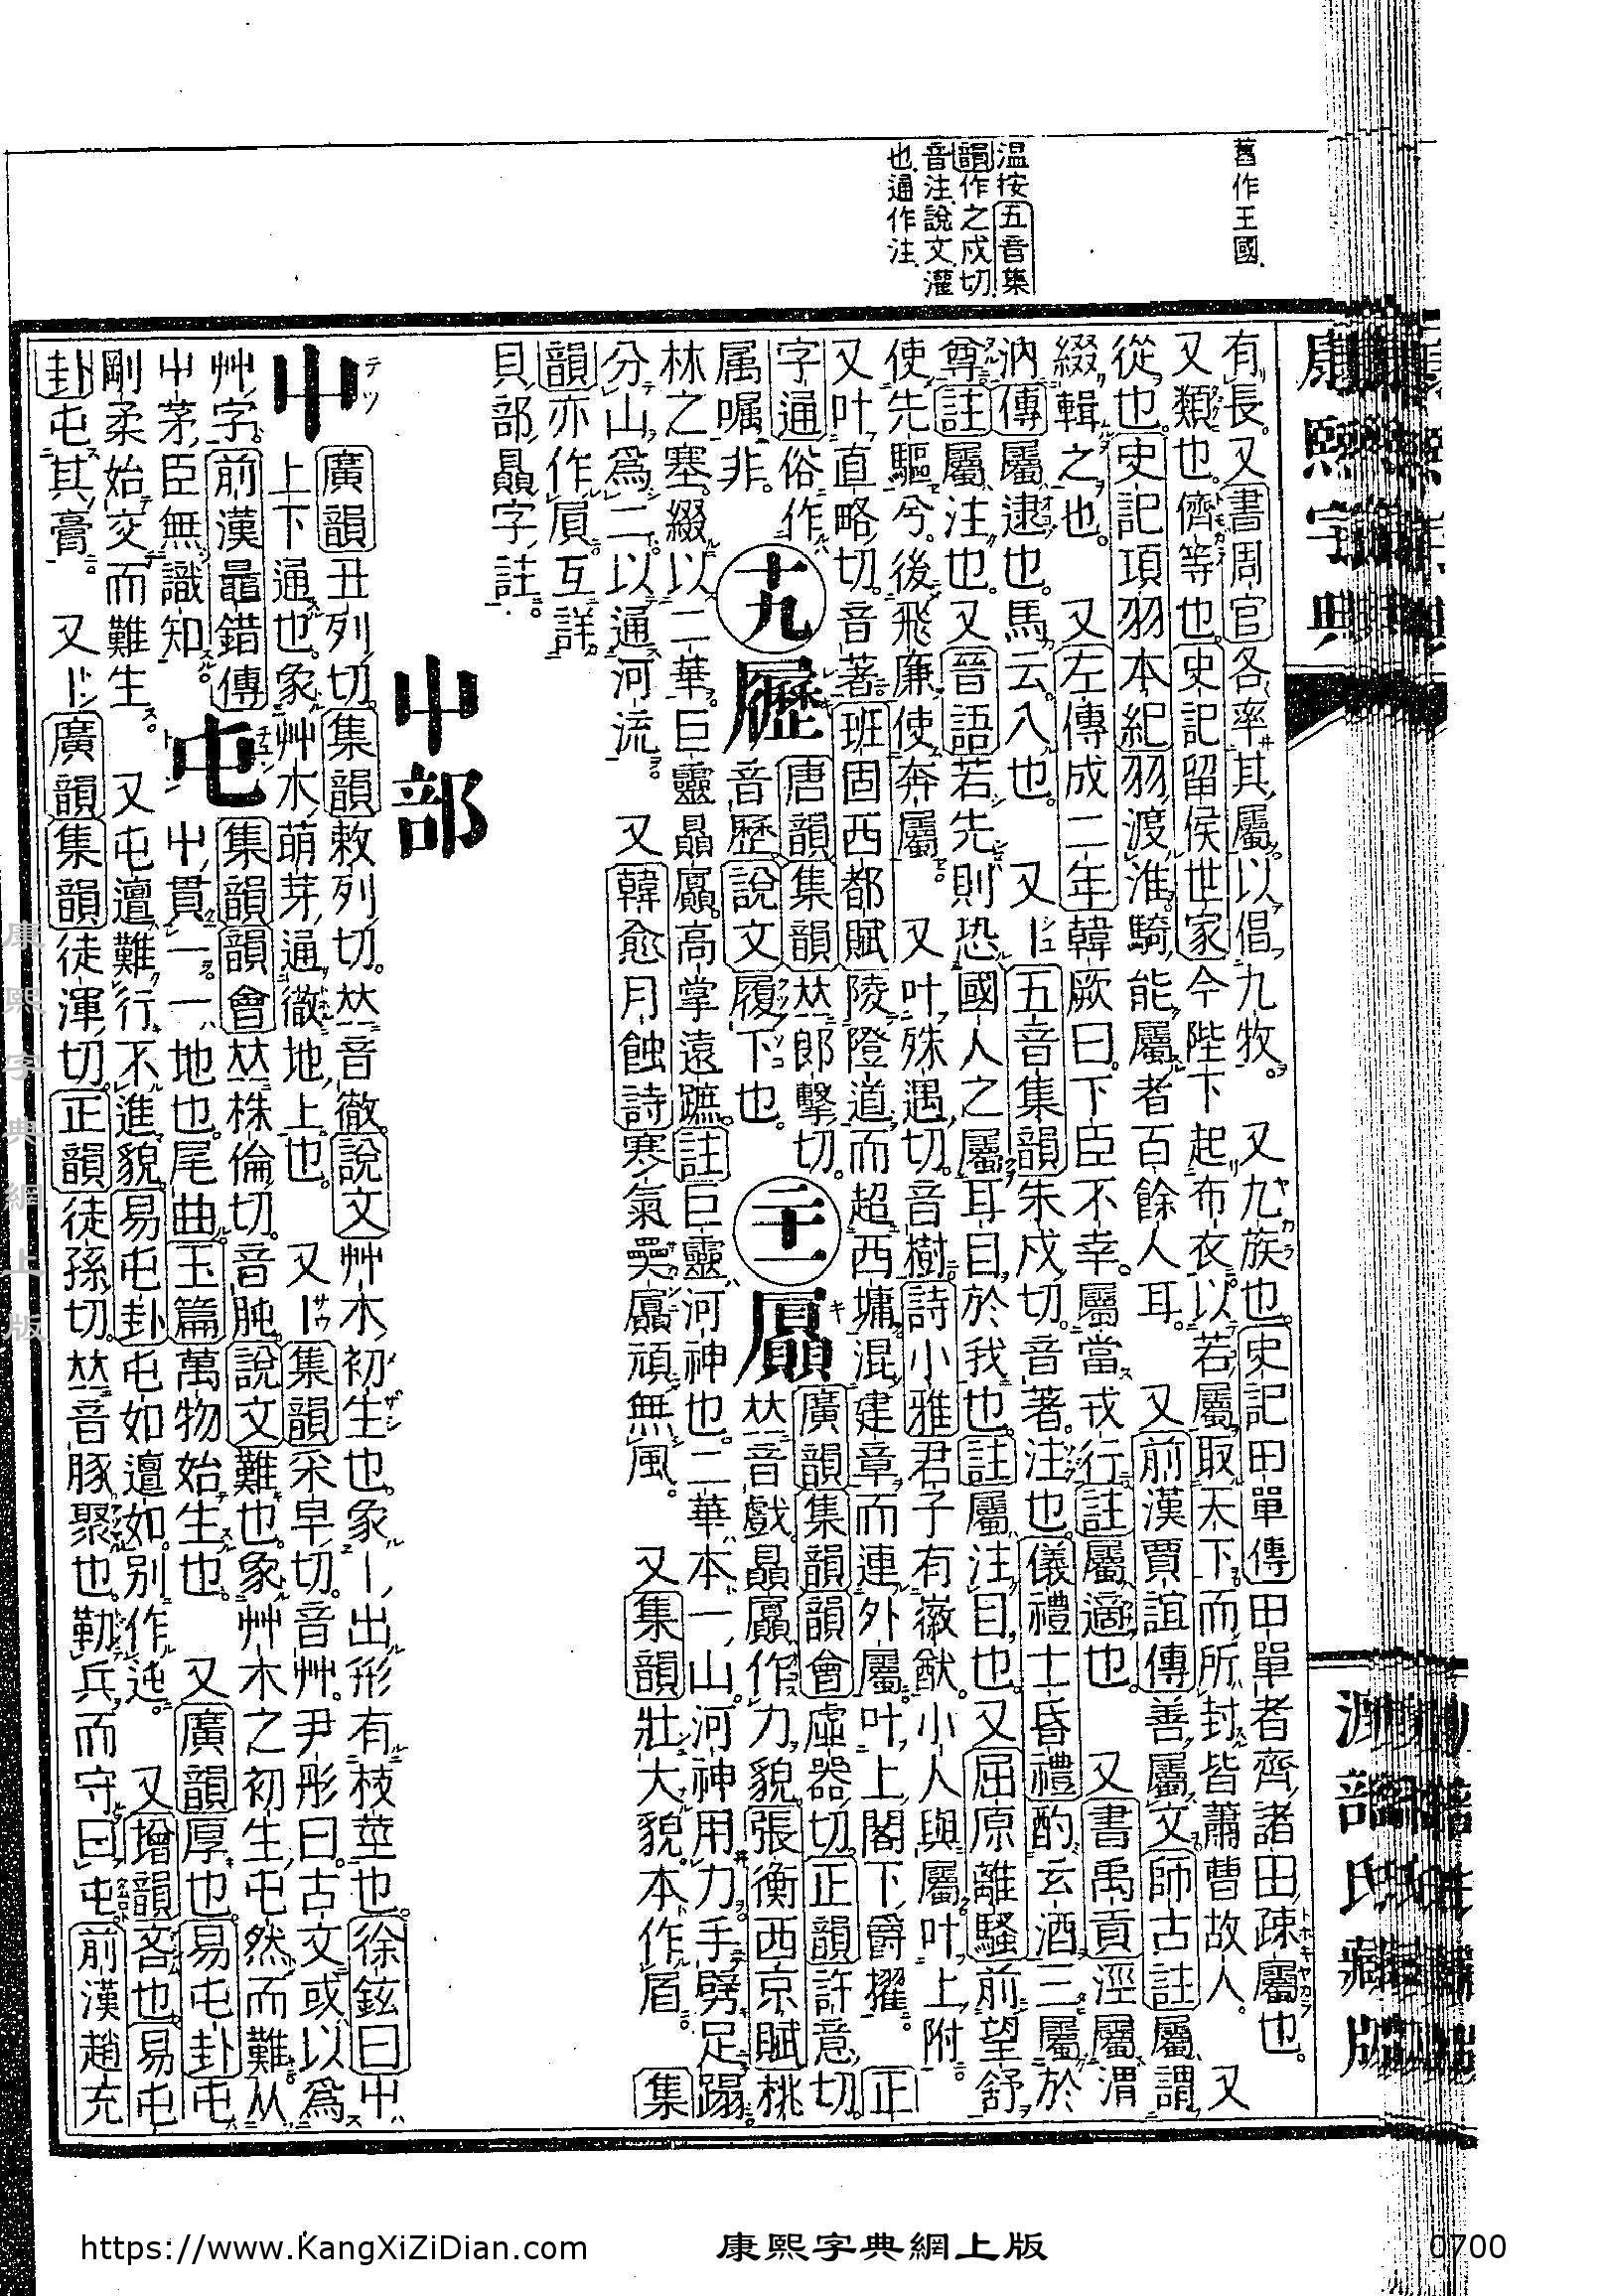 舊作王國
温按五音集
韻作之戍切
音注說文灌
也通作注
康熙字典
有長又書周官各率其屬以倡九牧 又九族也史記田單傳田單者齊諸田疎屬也
又類也儕等也史記留侯世家今陛下起布衣以若屬取天下而所封皆蕭曹故人 又
從也史記項羽本紀羽渡淮騎能屬者百餘人耳 又前漢賈誼傳善屬文師古註屬謂
綴輯之也 又左傳成二年韓厥曰下臣不幸屬當戎行註屬適也 又書禹貢涇屬渭
汭傳屬逮也馬云入也 又丨五音集韻朱戍切音著注也儀禮士昏禮酌玄酒三屬於
尊註屬注也又晉語若先則恐國人之屬耳目於我也註屬注目也又屈原離騷前望舒
使先驅兮後飛廉使奔屬 又叶殊遇切音樹詩小雅君子有徽猷小人與屬叶上附
又叶直略切音著班固西都賦陵隥道而超西墉混建章而連外屬叶上閣下爵擢 正
字通俗作
属嘱非
十九
㞕
唐韻集韻𠀤郎擊切
音歷說文履下也
二十一
屭
廣韻集韻韻會虛器切正韻許意切
𠀤音戲贔屭作力貌張衡西京賦桃
林之塞綴以二華巨靈贔屭高掌遠蹠註巨靈河神也二華本一山河神用力手劈足蹋
分山爲二以通河流 又韓愈月蝕詩寒氣屭屭頑無風 又集韻壯大貌本作㞒 集
韻亦作屓互詳
貝部贔字註
屮部
屮
廣韻丑列切集韻敕列切𠀤音徹說文艸木初生也象丨出形有枝莖也徐鉉曰屮
上下通也象艸木萌芽通徹地上也 又丨集韻采早切音艸尹彤曰古文或以爲
艸字前漢鼂錯傳
屮茅臣無識知
屯
集韻韻會𠀤株倫切音肫說文難也象艸木之初生屯然而難从
屮貫一一地也尾曲玉篇萬物始生也 又廣韻厚也易屯卦屯
剛柔始交而難生 又屯邅難行不進貌易屯卦屯如邅如別作迍 又增韻吝也易屯
卦屯其膏 又丨廣韻集韻徒渾切正韻徒孫切𠀤音豚聚也勒兵而守曰屯前漢趙充
康熙字典網上版
https://www.KangXiZiDian.com
康熙字典網上版
0700